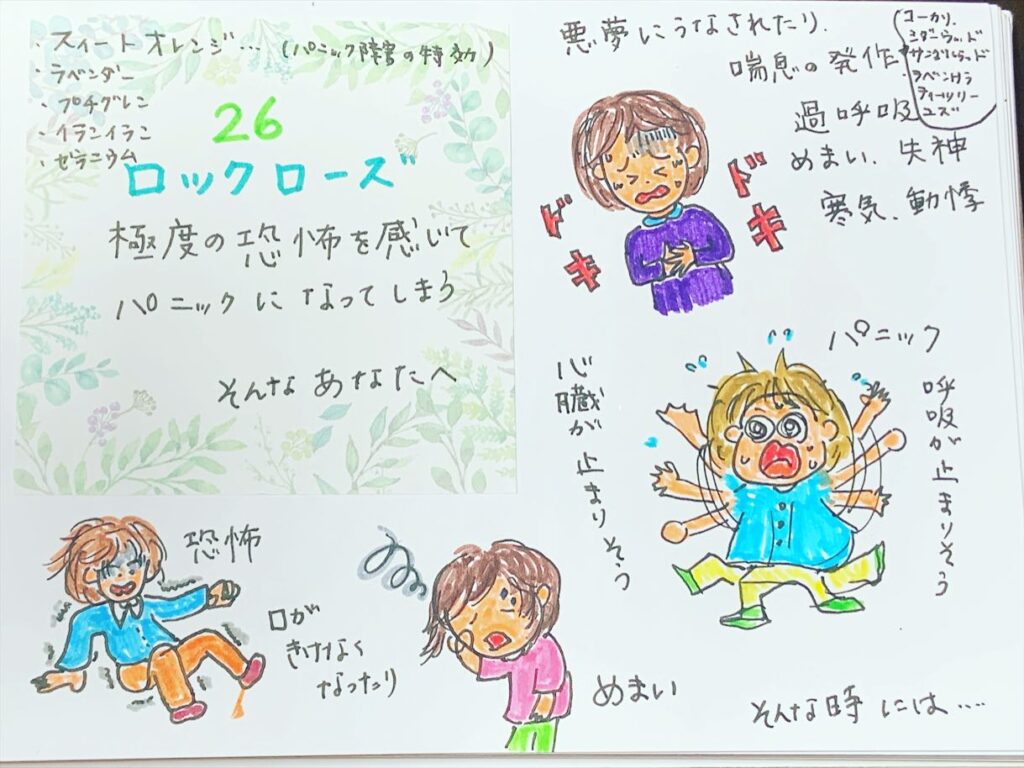 ・スィートオレンジ…(パニック障害の特効)
・ラベンダー
・プチグレン
・イランイラン
・ゼラニウム
26
ロックローズ
極度の恐怖を感じて
パニックになってしまう
そんなあなたへ
悪夢にうなされたり、
喘息の発作
過呼吸
めまい、失神
寒気、動悸
ユーカリ、
シダーウッド
サンダルウッド
ティーツリー
ユズ
ドキ
ドキ
パニック
心臓が止まりそう
呼吸が止まりそう
恐怖
口が
きけなく
なったり
めまい
そんな時には…..